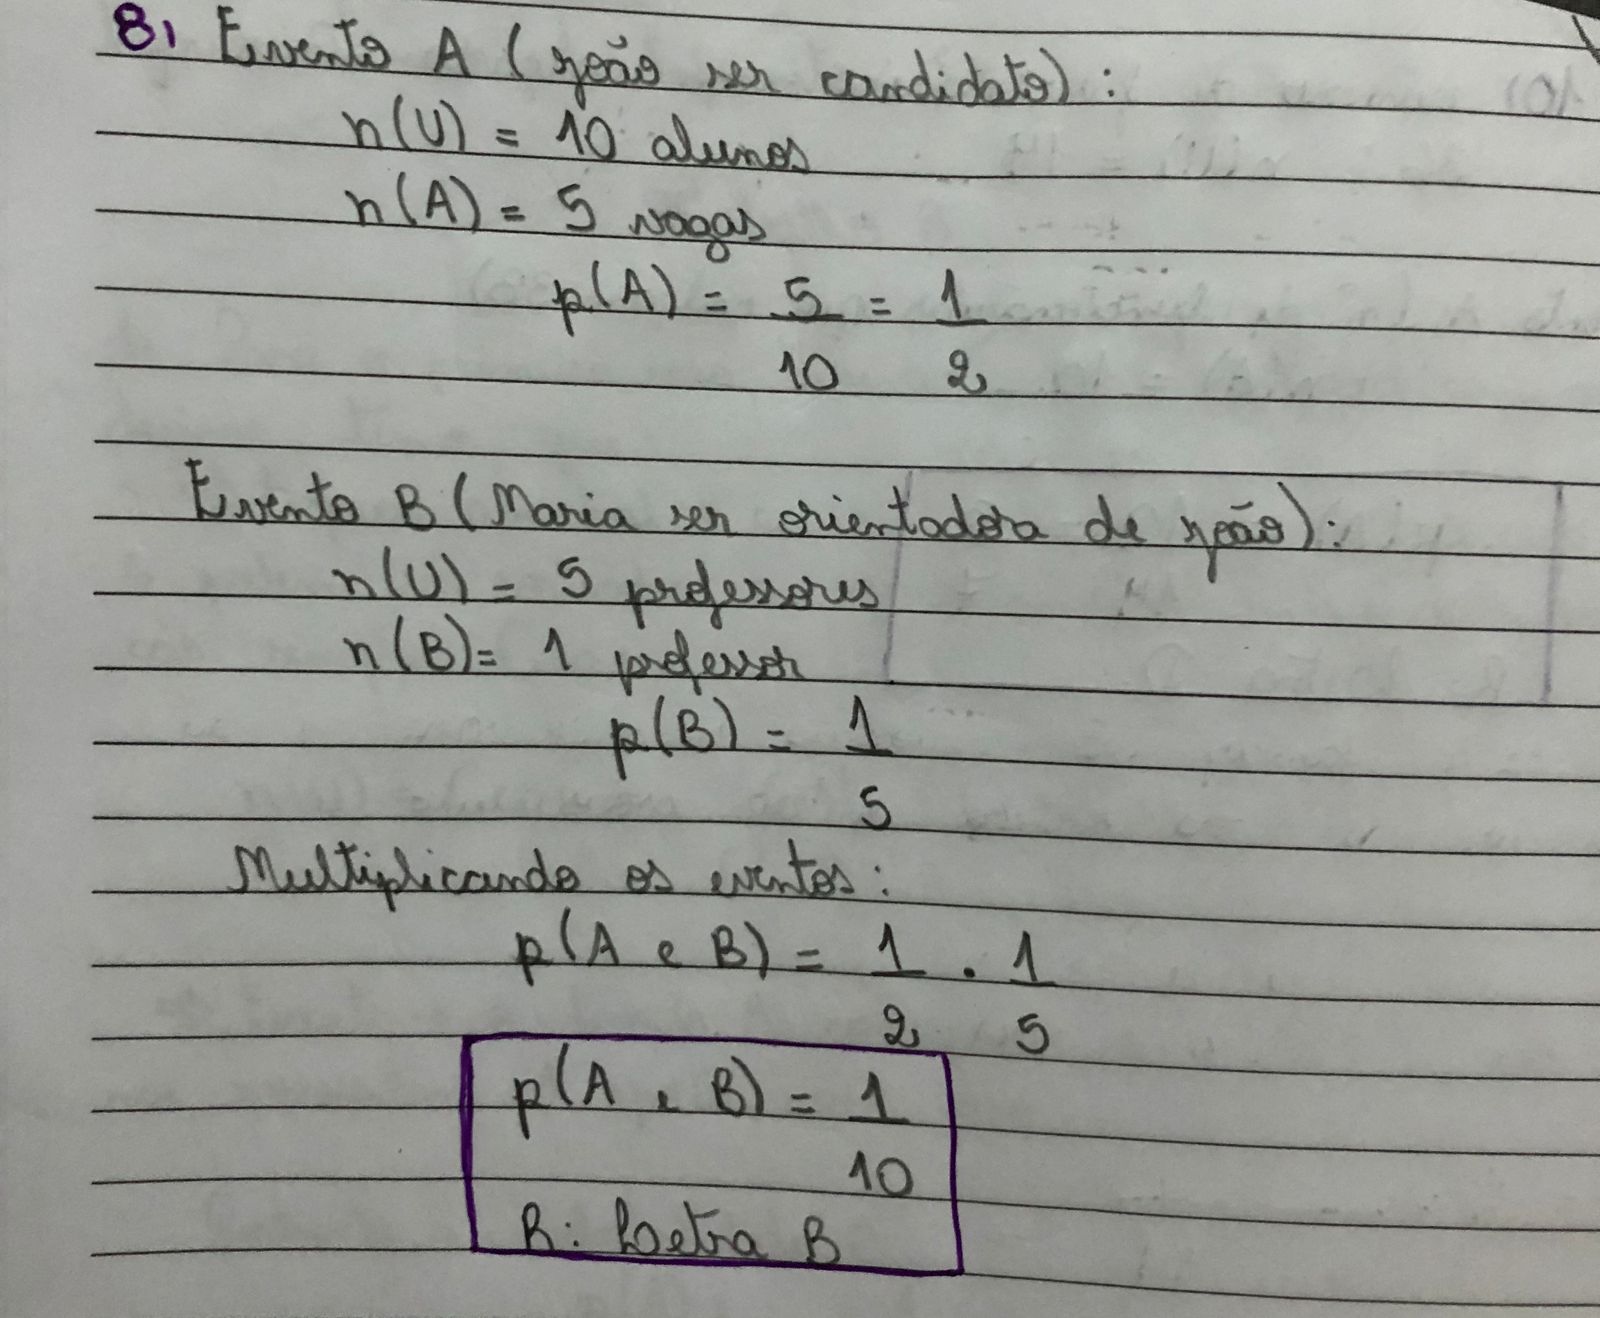 8) Evento A (João ser candidato):
n(U) = 10 alunos
n(A) = 5 vagas
p(A) = 5/10 = 1/2
Evento B (Maria ser orientadora de João):
n(U) = 5 professores
n(B) = 1 professor
p(B) = 1/5
Multiplicando os eventos:
p(A e B) = 1/2 . 1/5
p(A e B) = 1/10
R: Letra B